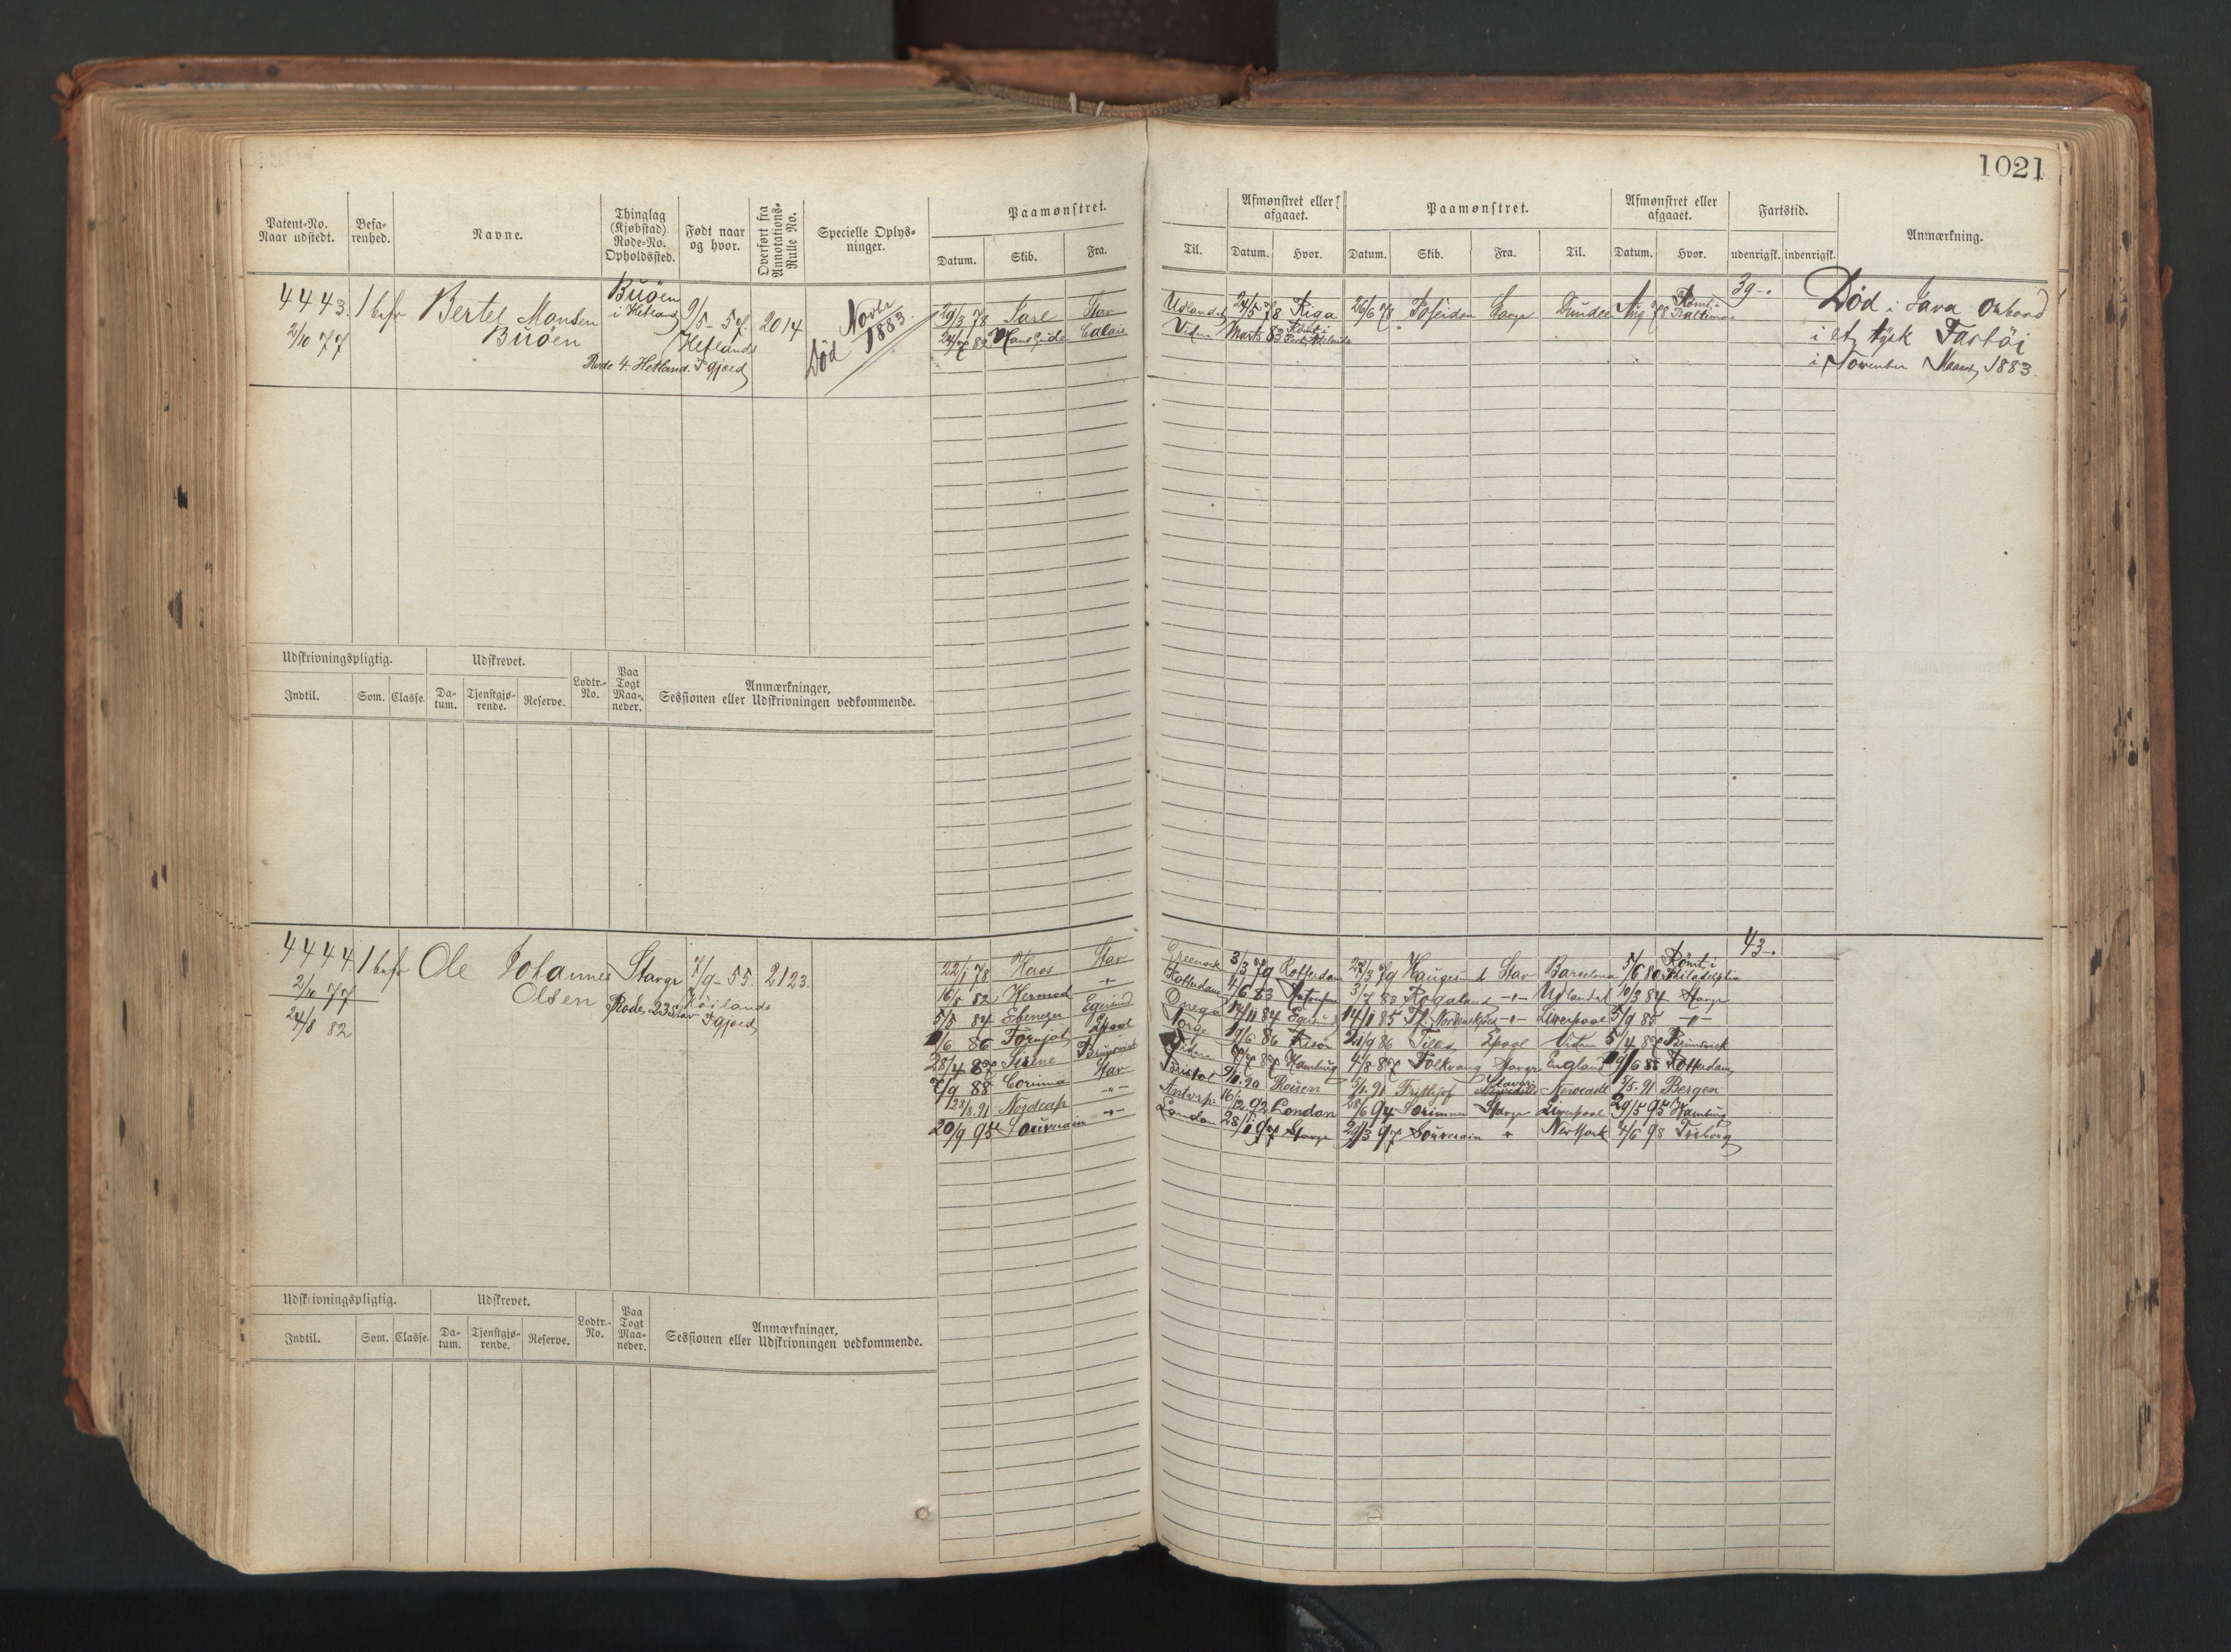 1021
Patent-No. Naar udstedt.
Befarenhed.
Navne.
Thinglag (Kjøbstad) Rode-No. Opholdssted.
Født naar og hvor.
Overført fra Annotations-Rulle No.
Specielle Oplysninger.
Paamønstret.
Datum. Skib. Fra.
Til.
Afmønstret eller afgaaet.
Datum. Hvor.
Paamønstret.
Datum. Skib. Fra. Til.
Afmønstret eller afgaaet.
Datum. Hvor.
Fartstid.
udenrigsk. indenrigsk.
Anmærkning.
4443. 1 bef
2/10 77
Bertel Monsen
Buöen
Buöen
i Hetland
Rode 4. Hetland.
9/5 - 57.
Hetlands
Pgjæld
2014
Død Novbr 1883.
19/3 78 Jarl Stav Udlandet 24/5 78 Riga 26/6 78 Poseidon Stavgr Dundee Aug 78 Römt i Baltimore
39-.
Calais Viden Marts 83 Römt i
Død i Java Ombord
i et tysk Fartöi
i November Maaned 1883.
Udskrivningspligtig.
Udskrevet.
Indtil. Som. Classe.
Datum. Tjenstgjørende. Reserve.
Lodtr.-No.
Paa Togt Maaneder.
Anmærkninger,
Sessionen eller Udskrivningen vedkommende.
4444. 1 bef
2/10 77
24/8 82
Ole Johannes
Olsen
Stavgr
Rode 23 Stav
7/9 - 55.
Höilands
Pgjæld
2123.
43-.
22/1 78 Heros Stav Greenock 3/3 79 Rotterdam 27/3 79 Haugesund Stav Barcelona 7/6 80 Römt i Philadelphia
16/5 82 Hermod -"- Rotterdam 4/6 83 3/7 83 Rogaland -"- Udlandet 10/3 84 Stavgr
5/5 84 Ebenezer Egersund Onega 14/11 84 Egersund 14/1 85 -"- Liverpool 5/9 85 -"-
6 86 Fornjot Lpool Norge 19/6 86 21/9 86 Lpool Viden 5/4 87 Brunswick
28/4 87 Sirene Brunswick Viden 87 Hamburg 4/8 87 Folkvang Stavgr England 6 88 Rotterdam
7/9 88 Corinna Stav Bristol 90 Rouen 5/1. 91 Frithjof Stavgr Newcastle 7/5. 91 Bergen
91 Nordcap -"- Antvrp. 16/12. 92 London 28/6 94 Stavgr Liverpool 29/5 95 Hamburg
20/9 95 Souverain -"- London 28/1. 97 Stavgr 29/3 97 Souverain " New York 4/6 98
Udskrivningspligtig.
Udskrevet.
Indtil. Som. Classe.
Datum. Tjenstgjørende. Reserve.
Lodtr.-No.
Paa Togt Maaneder.
Anmærkninger,
Sessionen eller Udskrivningen vedkommende.